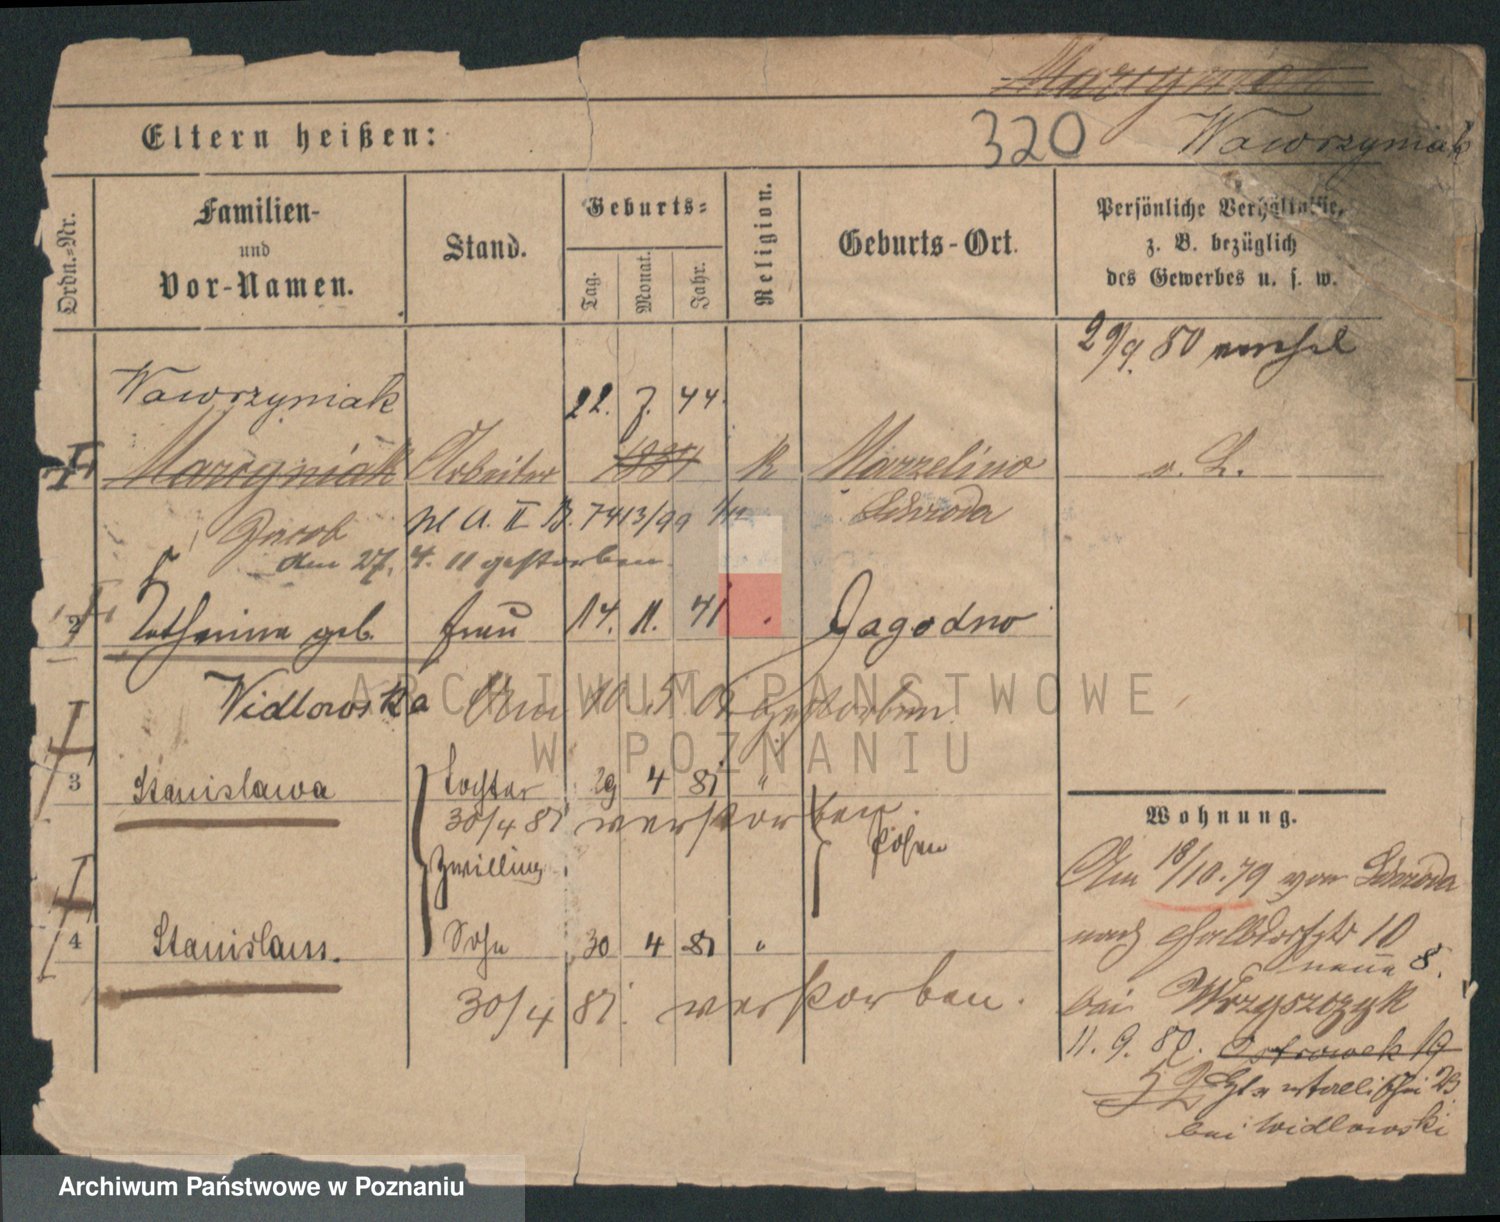 Marzyniak
Eltern heißen:
320
Wawrzyniak
Ordn.-Nr.
Familien-
und
Vor-Namen.
Stand.
Geburts-
Tag.
Monat.
Jahr.
Religion.
Geburts-Ort.
Persönliche Verhältnisse,
z. B. bezüglich
des Gewerbes u. s. w.
29/9. 80
Wawrzyniak
22. 7. 44.
Marzyniak Arbeiter 1837 K Marzelino
Jacob
II B. 7413/99 1/12
Schroda
den 27. 4. 11 gestorben
2 Catharina geb. Frau 14. 11. 41 Jagodno
Widlowska
Am 10. 5. gestorben
3 Stanislawa Tochter 29 4 81 "
30/4 81 verstorben.
Zwilling
Posen
4 Stanislaus. Sohn 30 4 81 "
30/4 81. verstorben.
Wohnung.
Am 18/10. 79 von Schroda
nach Halbdorfstr 10
neue 8.
bei Wrzyszczyk
11. 9. 80. Ostrowek 19
bei Widlowski
ARCHIWUM PAŃSTWOWE
W POZNANIU
Archiwum Państwowe w Poznaniu